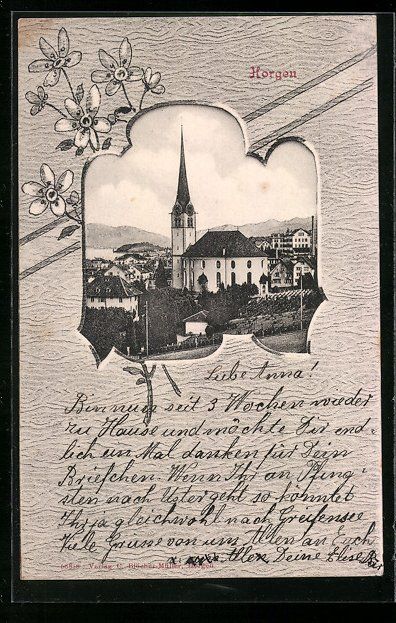 Horgen
Liebe Anna!
Bin nun seit 3 Wochen wieder
zu Hause und möchte Dir end-
lich ein Mal danken für Dein
Briefchen. Wenn Ihr an Pfing-
sten nach Uster geht so könntet
Ihr ja gleichwohl nach Greifensee
Viele Grüsse von uns Allen an Euch
Allen, Deine Elise
Verlag C. Blücher-Müller, Horgen